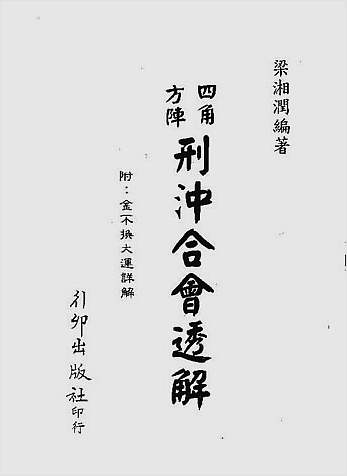 梁湘潤編著
四角
方陣
刑沖合會透解
附：金不換大運詳解
行卯出版社印行